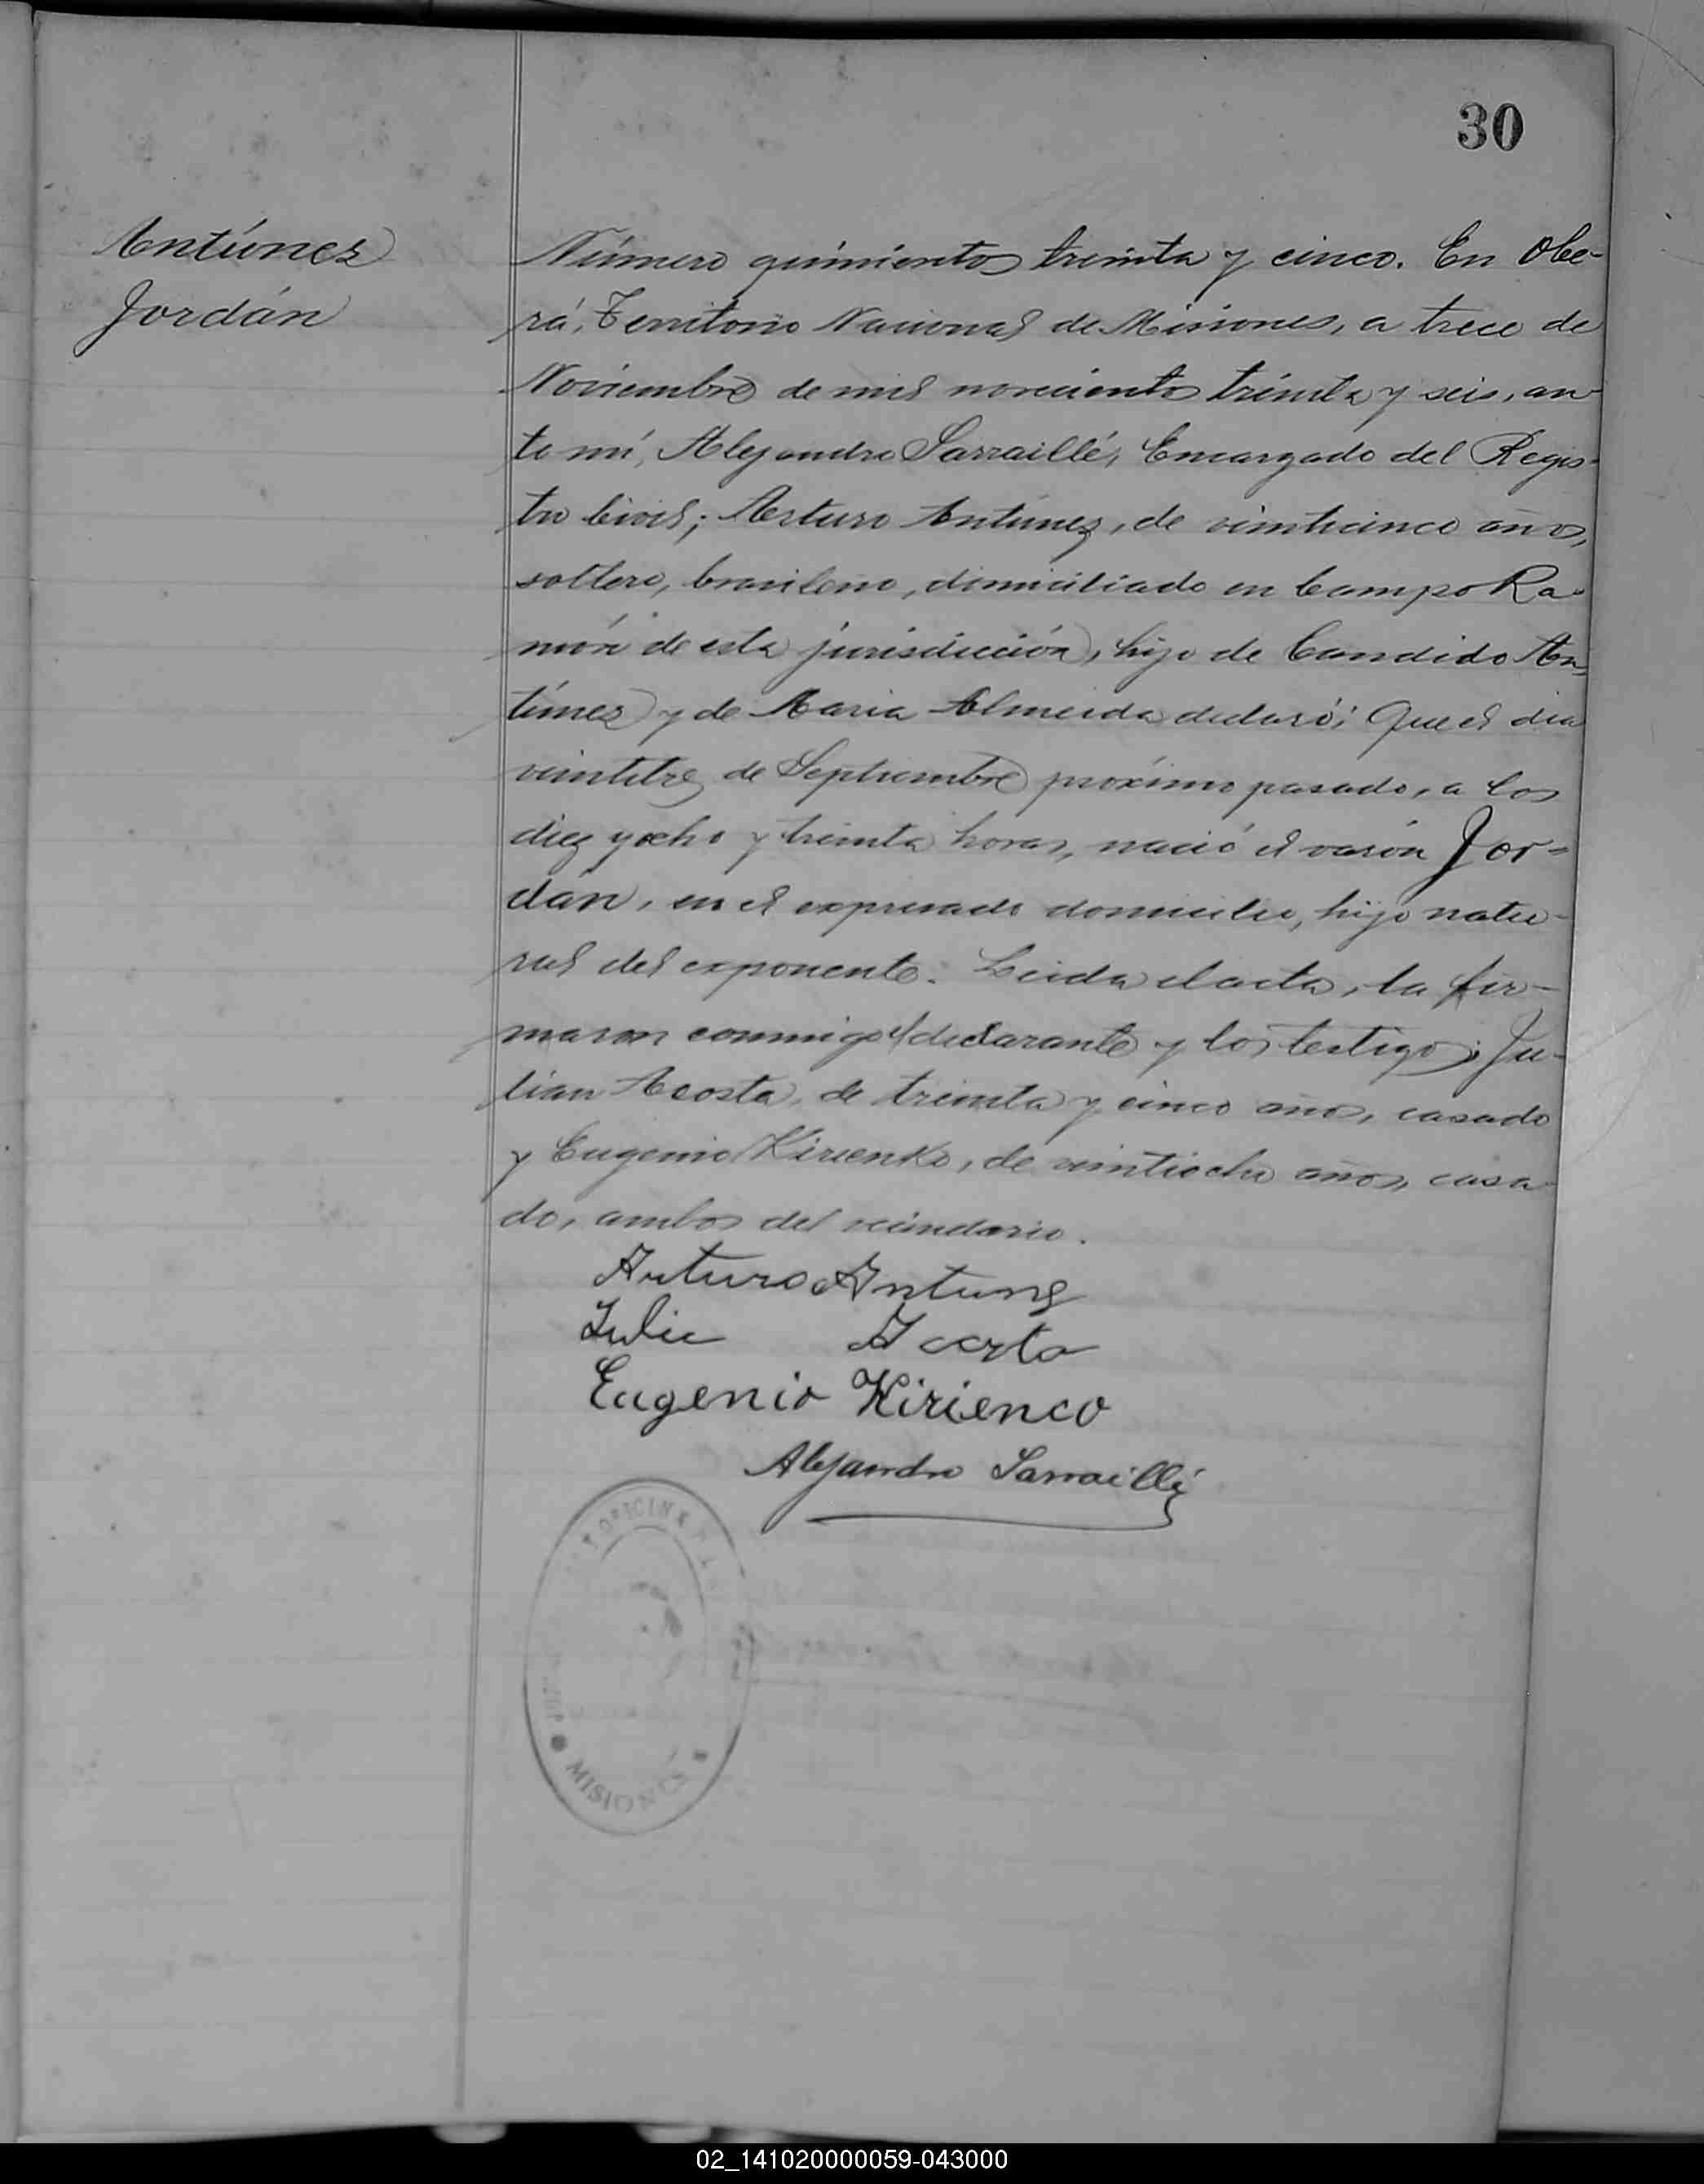 30
Antúnez
Jordán
Número quinientos treinta y cinco. En Obe-
rá, Territorio Nacional de Misiones, a trece de
Noviembre de mil novecientos treinta y seis, an-
te mí, Alejandro Sarraillé, Encargado del Regis-
tro Civil; Arturo Antúnez, de veinticinco años,
soltero, brasileno, domiciliado en Campo Ra-
món de esta jurisdicción, hijo de Candido An-
túnez y de Maria Almeida declaró: Que el dia
veintitres de Septiembre próximo pasado, a las
diez y ocho y treinta horas, nació el varón Jor-
dán, en el expresado domicilio, hijo natu-
ral del exponente. Leida el acta, la fir-
maron conmigo el declarante y los testigos: Ju-
lian Acosta, de treinta y cinco años, casado
y Eugenio Kirienko, de veintiocho años, casa-
do, ambos del vecindario.
Arturo Antung
Julie Acosta
Eugenio Kirienco
Alejandro Sarraillé
OFICINA
MISIONES
02_141020000059-043000